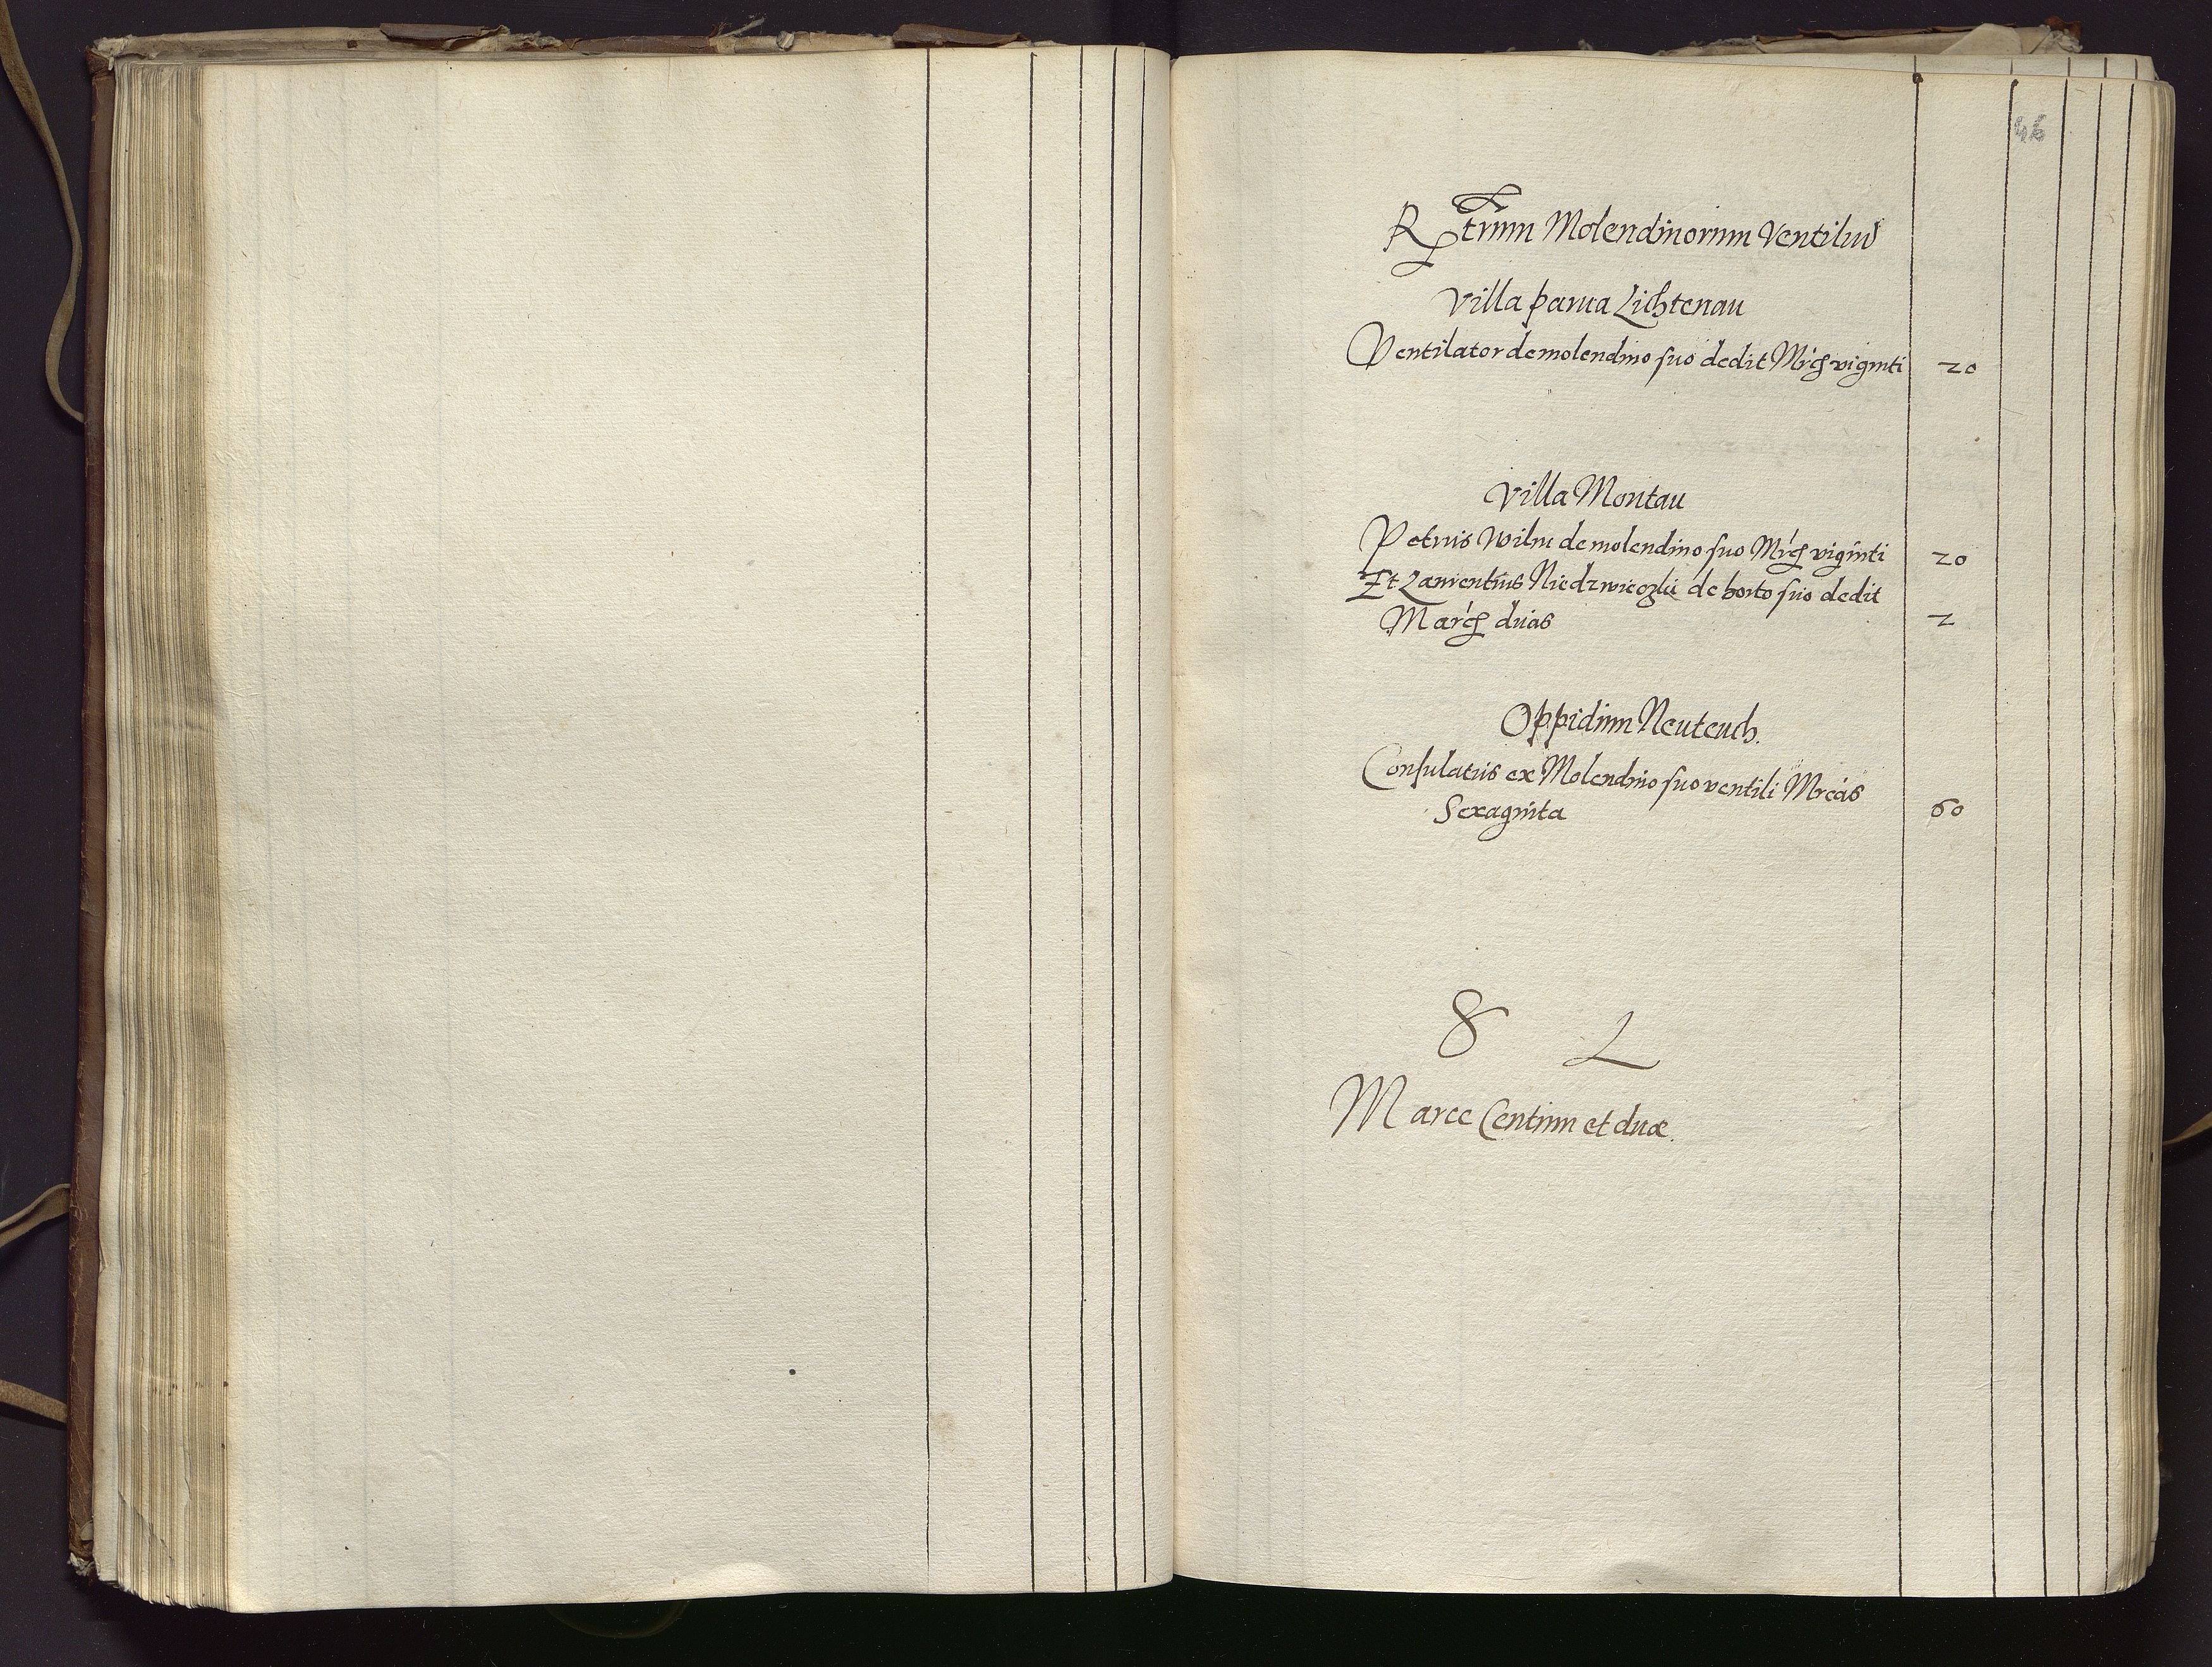 46
Rgtrum Molendinorum Ventiliū
Villa parua Lichtenau
Ventilator de molendino suo dedit Mrcʒ viginti 20
Villa Montau
Petrus Wilm de molendino suo Mrcʒ viginti 20
Et Laurentius de horto suo dedit
Marcʒ duas 2
Oppidum Neuteuch.
Consulatus ex Molendino suo ventili Mrcas
Sexaginta 60
S L
Marce Centum et duæ.